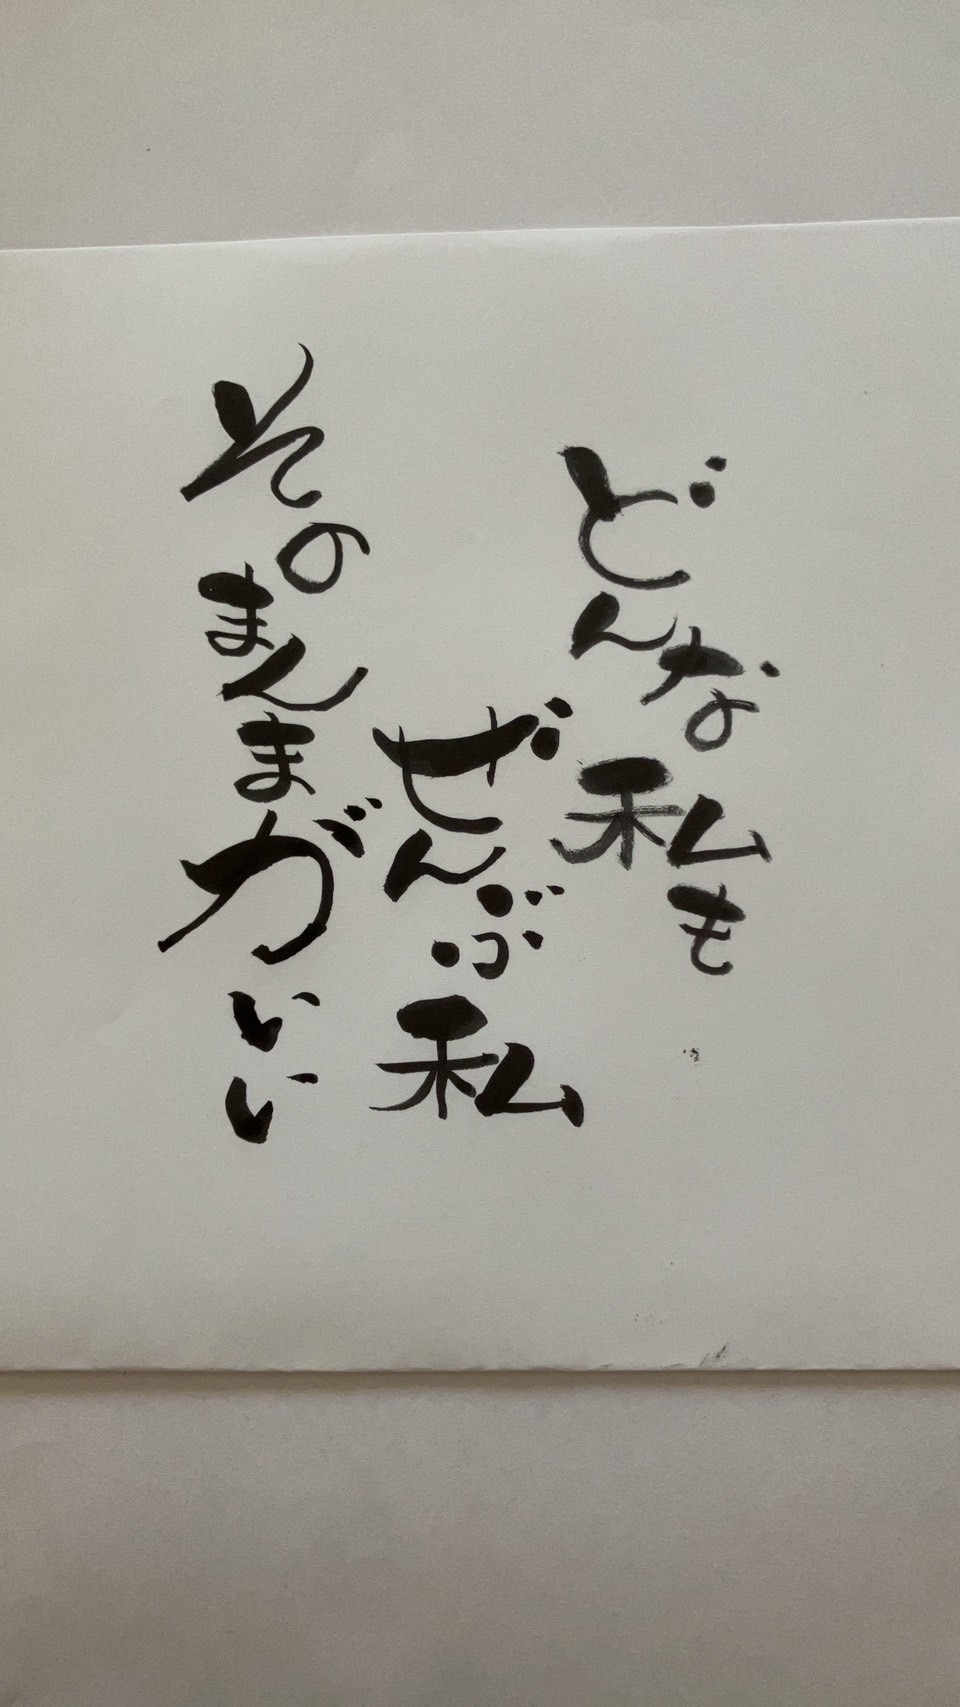 どんな私も
ぜんぶ私
そのまんまがいい